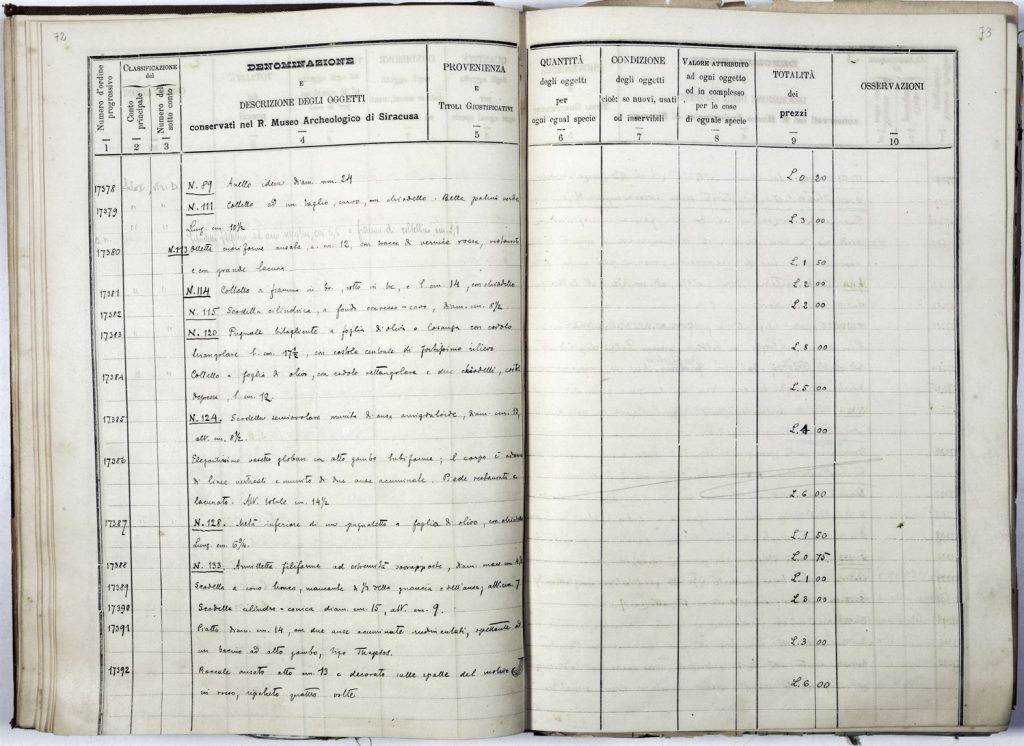 72
Numero d'ordine progressivo
Classificazione del
Conto principale
Numero del sotto conto
DENOMINAZIONE
E
DESCRIZIONE DEGLI OGGETTI
conservati nel R. Museo Archeologico di Siracusa
PROVENIENZA
E
Titoli Giustificativi
1 2 3 4 5
17378 N. 89 Anello idem diam. mm. 24
17379 N. 111 Coltello ad un taglio, curvo, con chiodello. Bella patina verde
Lung. cm. 10½
17380 N. 113 Olletta cuoriforme ansata, a. cm. 12, con tracce di vernice rossa, restaurata
e con grande lacuna
17381 N. 114 Coltello a fiamma in br., rotto in tre, e l. cm. 14, con chiodello
17382 N. 115 Scodella cilindrica, a fondo convesso-cavo, diam. cm. 8½
17383 N. 120 Pugnale bitagliente a foglia d'olivo o losanga con codolo
triangolare l. cm. 17½, con costola centrale di fortissimo rilievo
17384 Coltello a foglia di olivo, con codolo rettangolare e due chiodelli, costola
depressa, l. cm. 12
17385 N. 124. Scodella semiovolare munita di ansa amigdaloide, diam. cm. 12,
alt. cm. 8½.
17386 Elegantissimo vasetto globare con alto gambo tubiforme; il corpo è adorno
di linee verticali e munito di due anse acuminate. Piede restaurato e
lacunato. Alt. totale cm. 14½
17387 N. 128. Metà inferiore di un pugnaletto a foglia di olivo, con chiodello
Lung. cm. 6¾.
17388 N. 133. Armilletta filiforme ad estremità sovrapposte, diam. mass. cm.
17389 Scodella a cono tronco, mancante di ⅓ della pancia e dell'ansa, alt. cm. 7
17390 Scodella cilindro-conica diam. cm. 15, alt. cm. 9.
17391 Piatto diam. cm. 14, con due anse acuminate rudimentali, spettante ad
un bacino ad alto gambo, tipo Thapsos.
17392 Boccale ansato alto cm. 13 e decorato sulle spalle del motivo
in rosso, ripetuto quattro volte
73
QUANTITÀ
degli oggetti
per
ogni egual specie
CONDIZIONE
degli oggetti
cioè: se nuovi, usati
od inservibili
Valore attribuito
ad ogni oggetto
od in complesso
per le cose
di eguale specie
TOTALITÀ
dei
prezzi
OSSERVAZIONI
6 7 8 9 10
L. 0 20
L. 3 00
L. 1 50
L. 2 00
L. 2 00
L. 8 00
L. 5 00
L. 4 00
L. 6 00
L. 1 50
L. 0 75
L. 1 00
L. 3 00
L. 3 00
L. 6 00